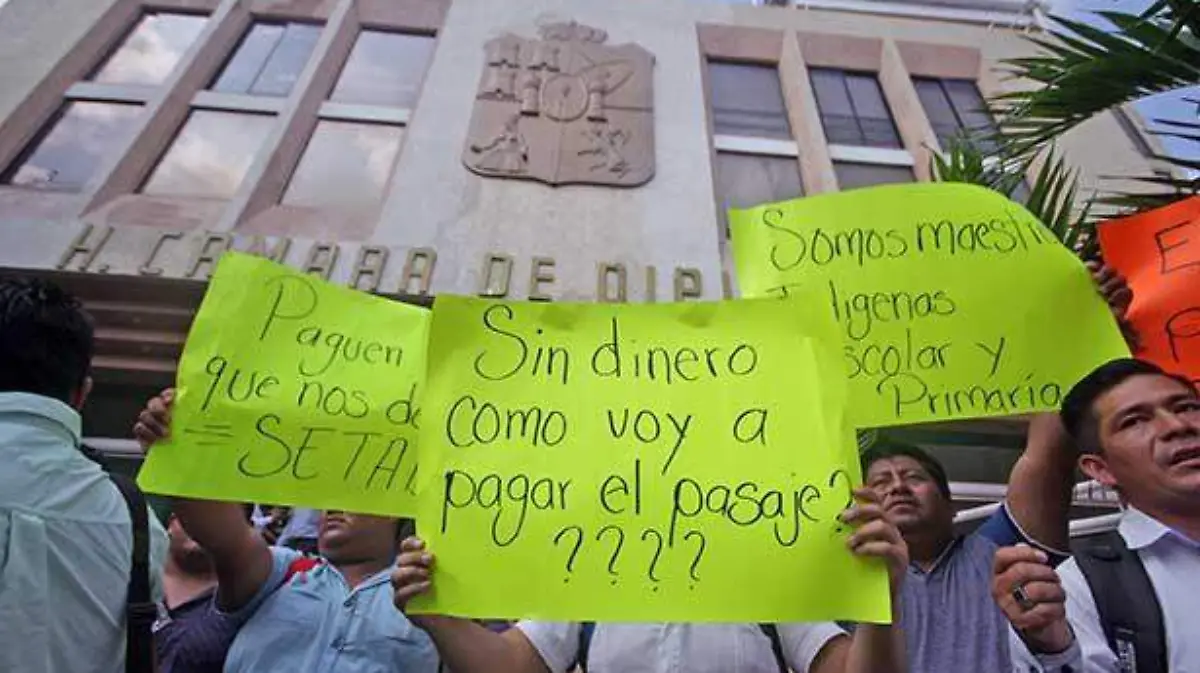 H. CAMARA DE DIP
Paguen
que nos de
= SETAB
Sin dinero
como voy a
pagar el pasaje?
????
Somos maestr
Indigenas
escolar y
Primaria